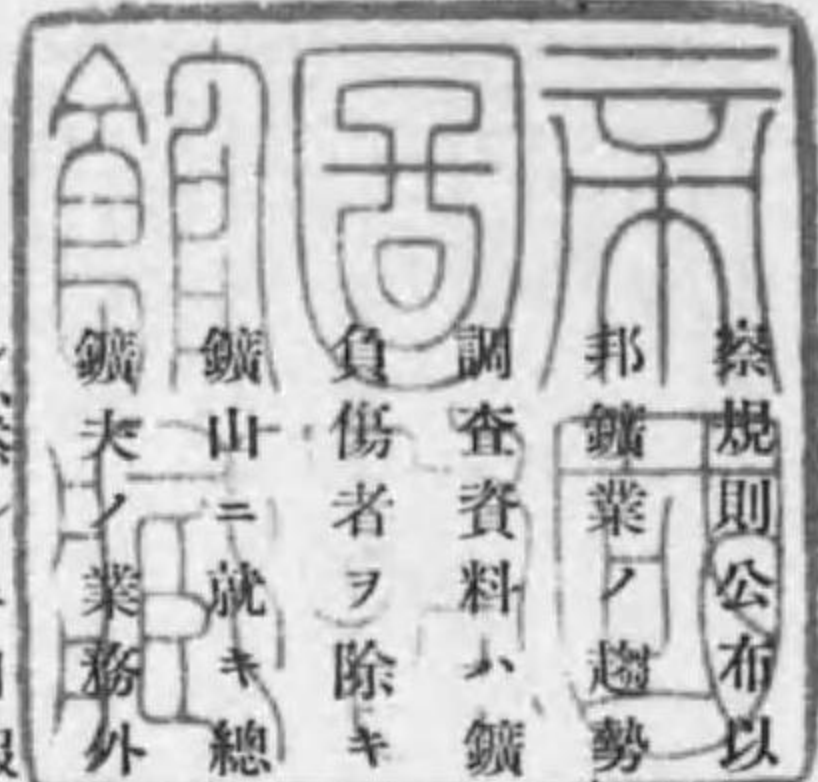 察規則公布以
邦鑛業ノ趨勢
調査資料ハ鑛
負傷者ヲ除キ
鑛山ニ就キ總
鑛夫ノ業務外